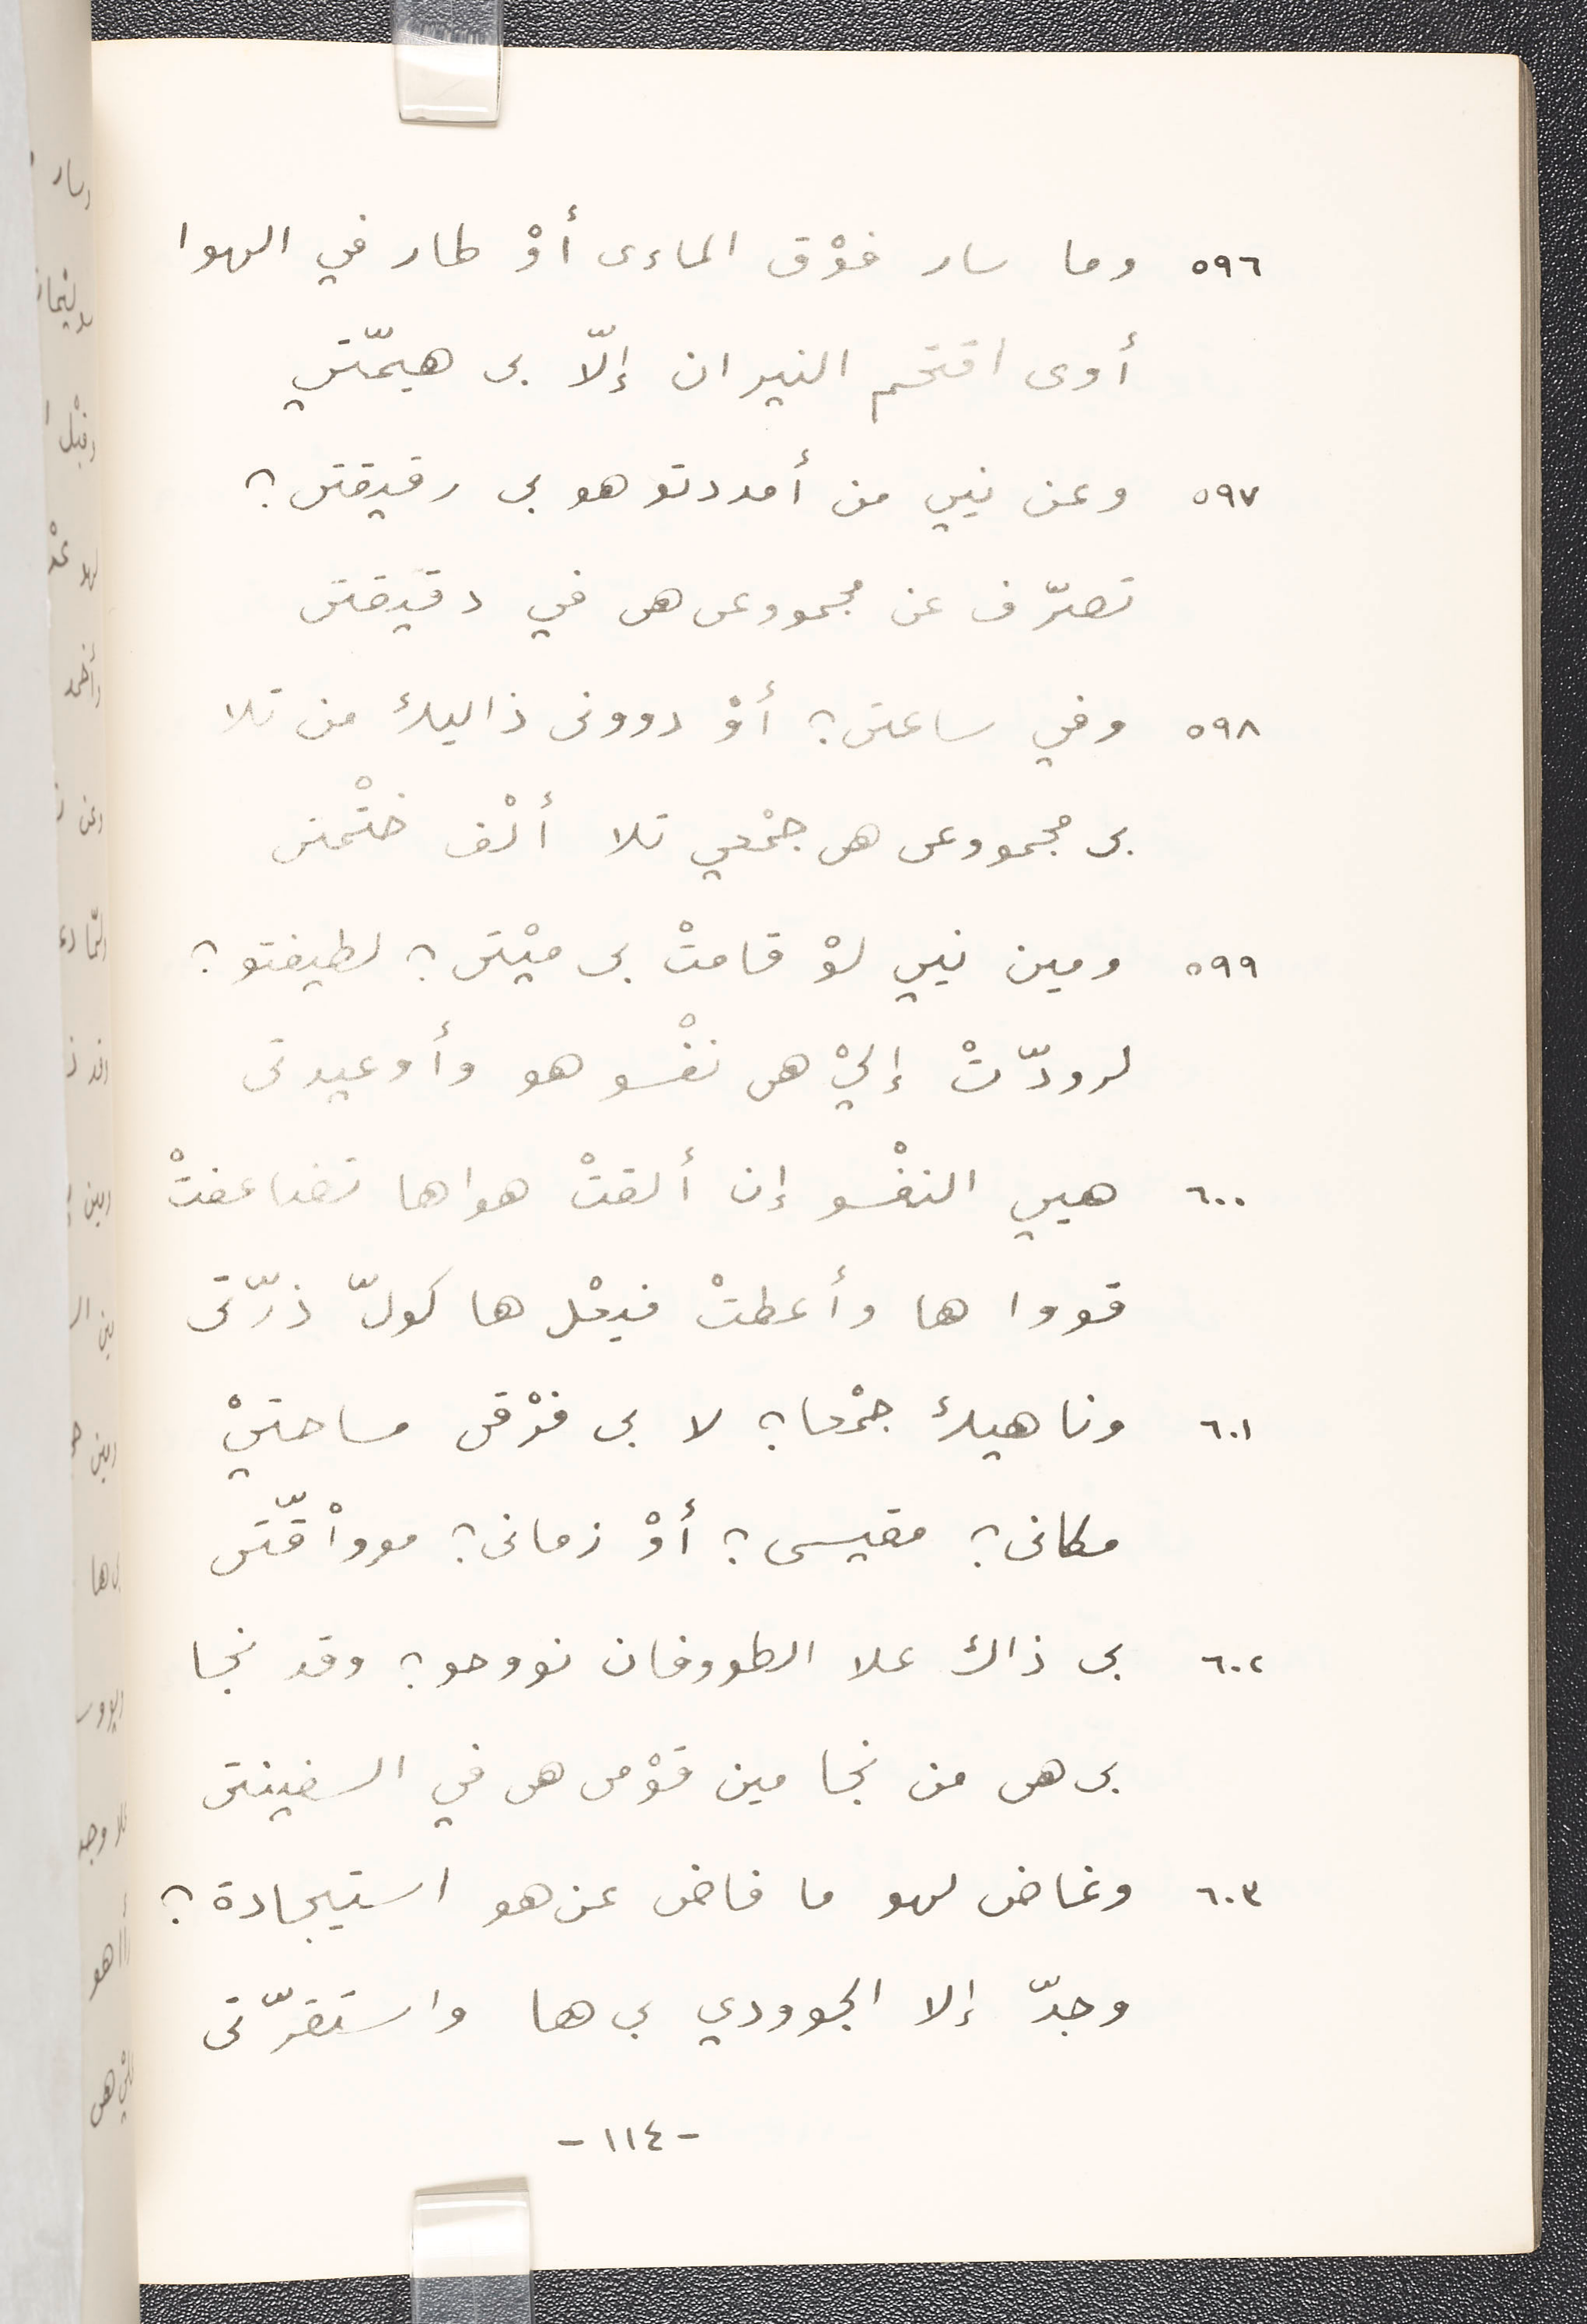 ٥٩٦ وما سار فوْق الماءى أوْ طار في الهوا
أوى اقتحم النيران إلّا بى هيمّتي
٥٩٧ وعن نيي من أمددتو هو بى رقيقتى؟
تصرّف عن مجمووعى هى في دقيقتى
٥٩٨ وفي ساعتى؟ أوْ دوونى ذاليك من تلا
بى مجمووعى هى جمْعي تلا ألْف ختْمتى
٥٩٩ ومين نيي لوْ قامتْ بى ميْتى؟ لطيفتو؟
لرودّتْ إليْ هى نفْسو هو وأوعيدتى
٦٠٠ هيي النفْسو إن ألقتْ هواها تضاعفتْ
قووا ها وأعطتْ فيعْل ها كولّ ذرّتى
٦٠١ وناهيك جمْعا؟ لا بى فرْقى مساحتيْ
مكانى؟ مقيسى؟ أوْ زمانى؟ مووأقّتى
٦٠٢ بى ذاك علا الطووفان نووحو؟ وقد نجا
بى هى من نجا مين قوْمى هى في السفينتى
٦٠٣ وغاض لهو ما فاض عن هو استيجادة؟
وجدّ إلا الجوودي بى ها واستقرّتى
-١١٤-